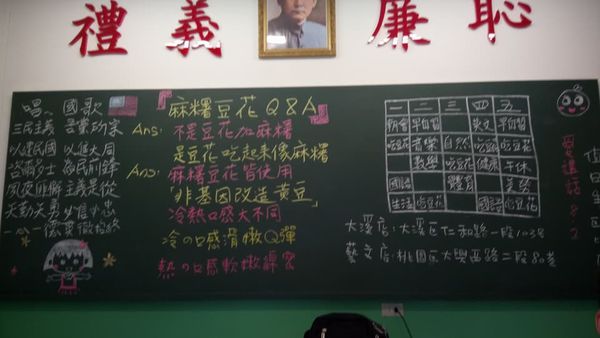 禮 義 廉 恥
唱、國歌
三民主義 吾黨所宗
以建民國 以進大同
咨爾多士 為民前鋒
夙夜匪懈 主義是從
矢勤矢勇 必信必忠
一心一德 貫徹始終
『麻糬豆花Q&A』
Ans: 不是豆花加麻糬
是豆花吃起來像麻糬
Ans: 麻糬豆花皆使用
「非基因改造黃豆」
冷熱口感大不同
冷の口感滑嫩Q彈
熱の口感軟嫩綿密
一 二 三 四 五
朝會 早自習 英文 早自習
吃豆花 音學 自然 吃豆花 吃豆花
數學 吃豆花 健康 午休
國語 體育 美勞
生活 吃豆花 國語 吃豆花
大溪店:大溪區仁和路一段103號
藝文店:桃園區大興西路二段80巷
愛還話
82
值日生